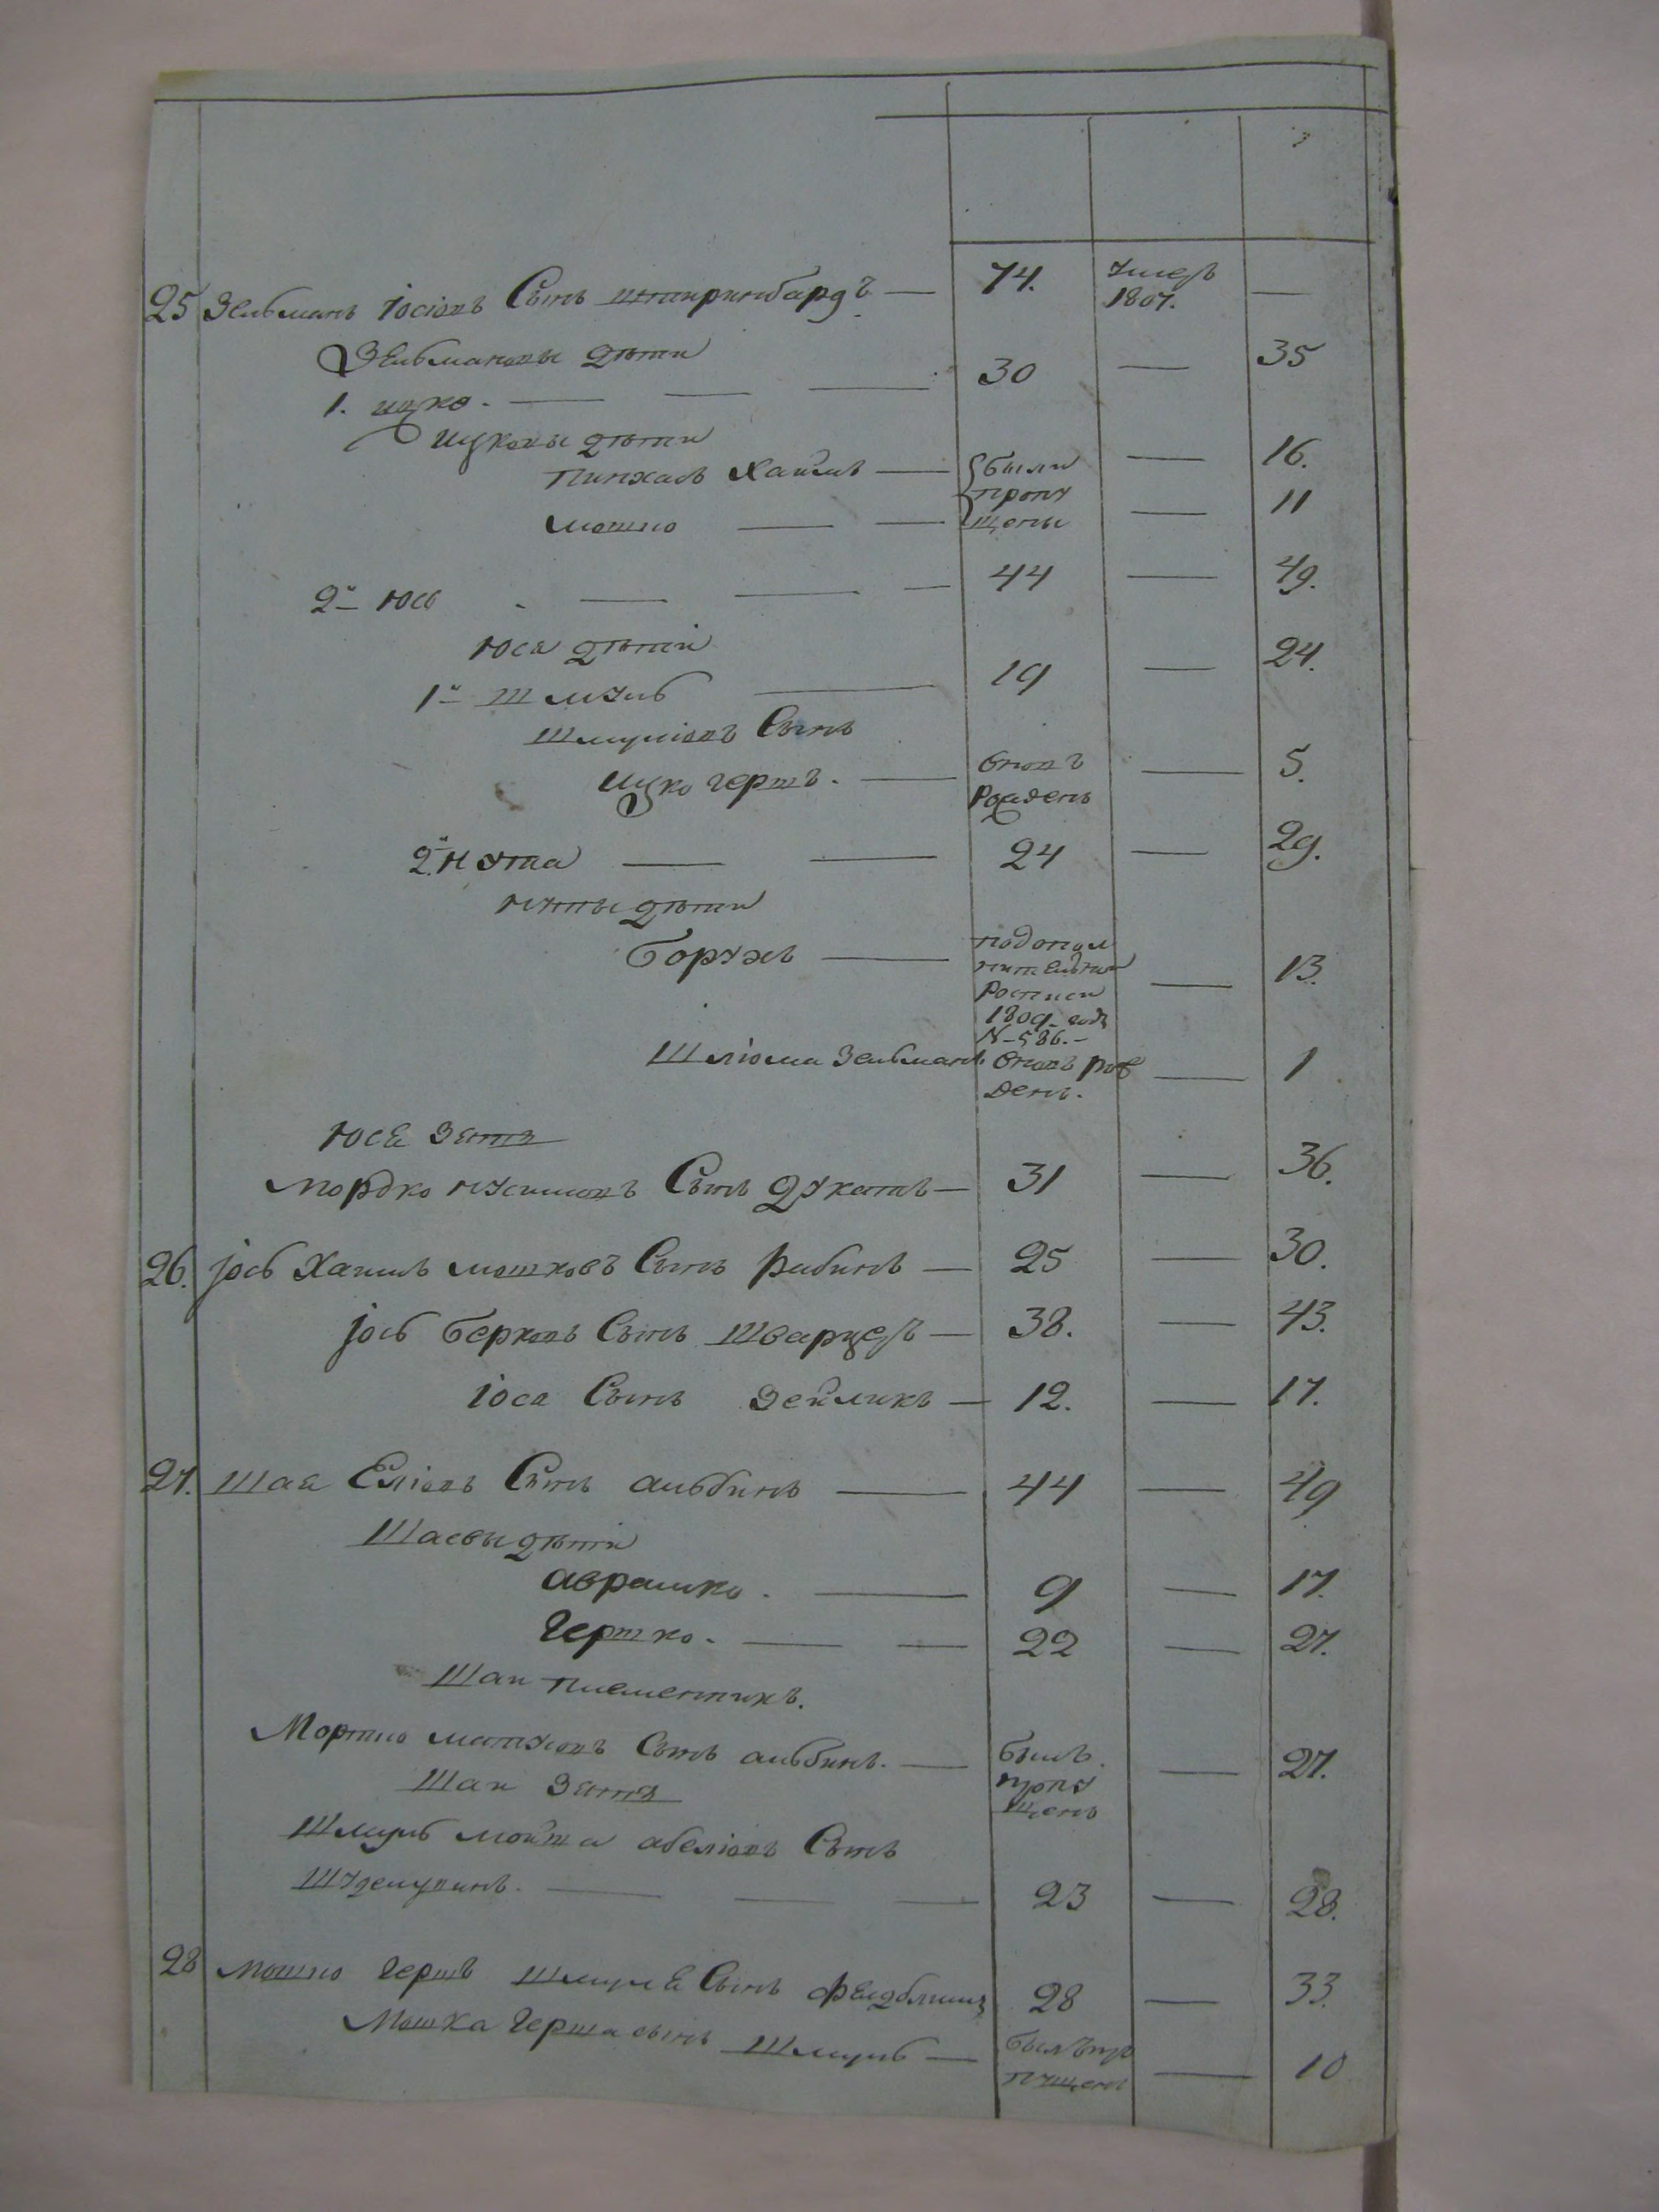 25 Зельманъ Іосіовъ Сынъ штапринбардъ — 74. умеръ 1807. —
Зельмановы дѣти
1. ицко. — 30 — 35
Ицковы дѣти
Пинхасъ Хаимъ — были — 16.
пропу
Мошко — щены — 11
2й Юсь — 44 — 49.
Юся дѣти
1й Шмуль — 19 — 24.
Шмуліовъ Сынъ
Ицко герштъ. — вновъ — 5.
рожденъ
2й Нута — 24 — 29.
Нуты дѣти
Борухъ — подопол — 13.
нительной
Росписи
1809 года
N 586.
Шліома Зельманъ вновъ рож — 1
денъ.
Юся зять
Мордко Нусимовъ Сынъ Дукатъ — 31 — 36.
26. Іось Хаимъ Мошковъ Сынъ Рабинъ — 25 — 30.
Іось Берковъ Сынъ Шварцеръ — 38. — 43.
Іося Сынъ Зейликъ — 12. — 17.
27. Шая Еліовъ Сынъ альбинъ — 44 — 49
Шаевы дѣти
аврамко. — 9 — 17.
Гершко. — 22 — 27.
Шаи племенникъ.
Мортко Матусовъ Сынъ альбинъ. — былъ — 27.
пропу
щенъ
Шаи зять
Шмуль Мойша абеліовъ Сынъ
— 23 — 28.
28 Мошко Гершъ Шмуля Сынъ — 28 — 33.
Мошка Герша сынъ Шмуль — былъ про — 10
пущенъ